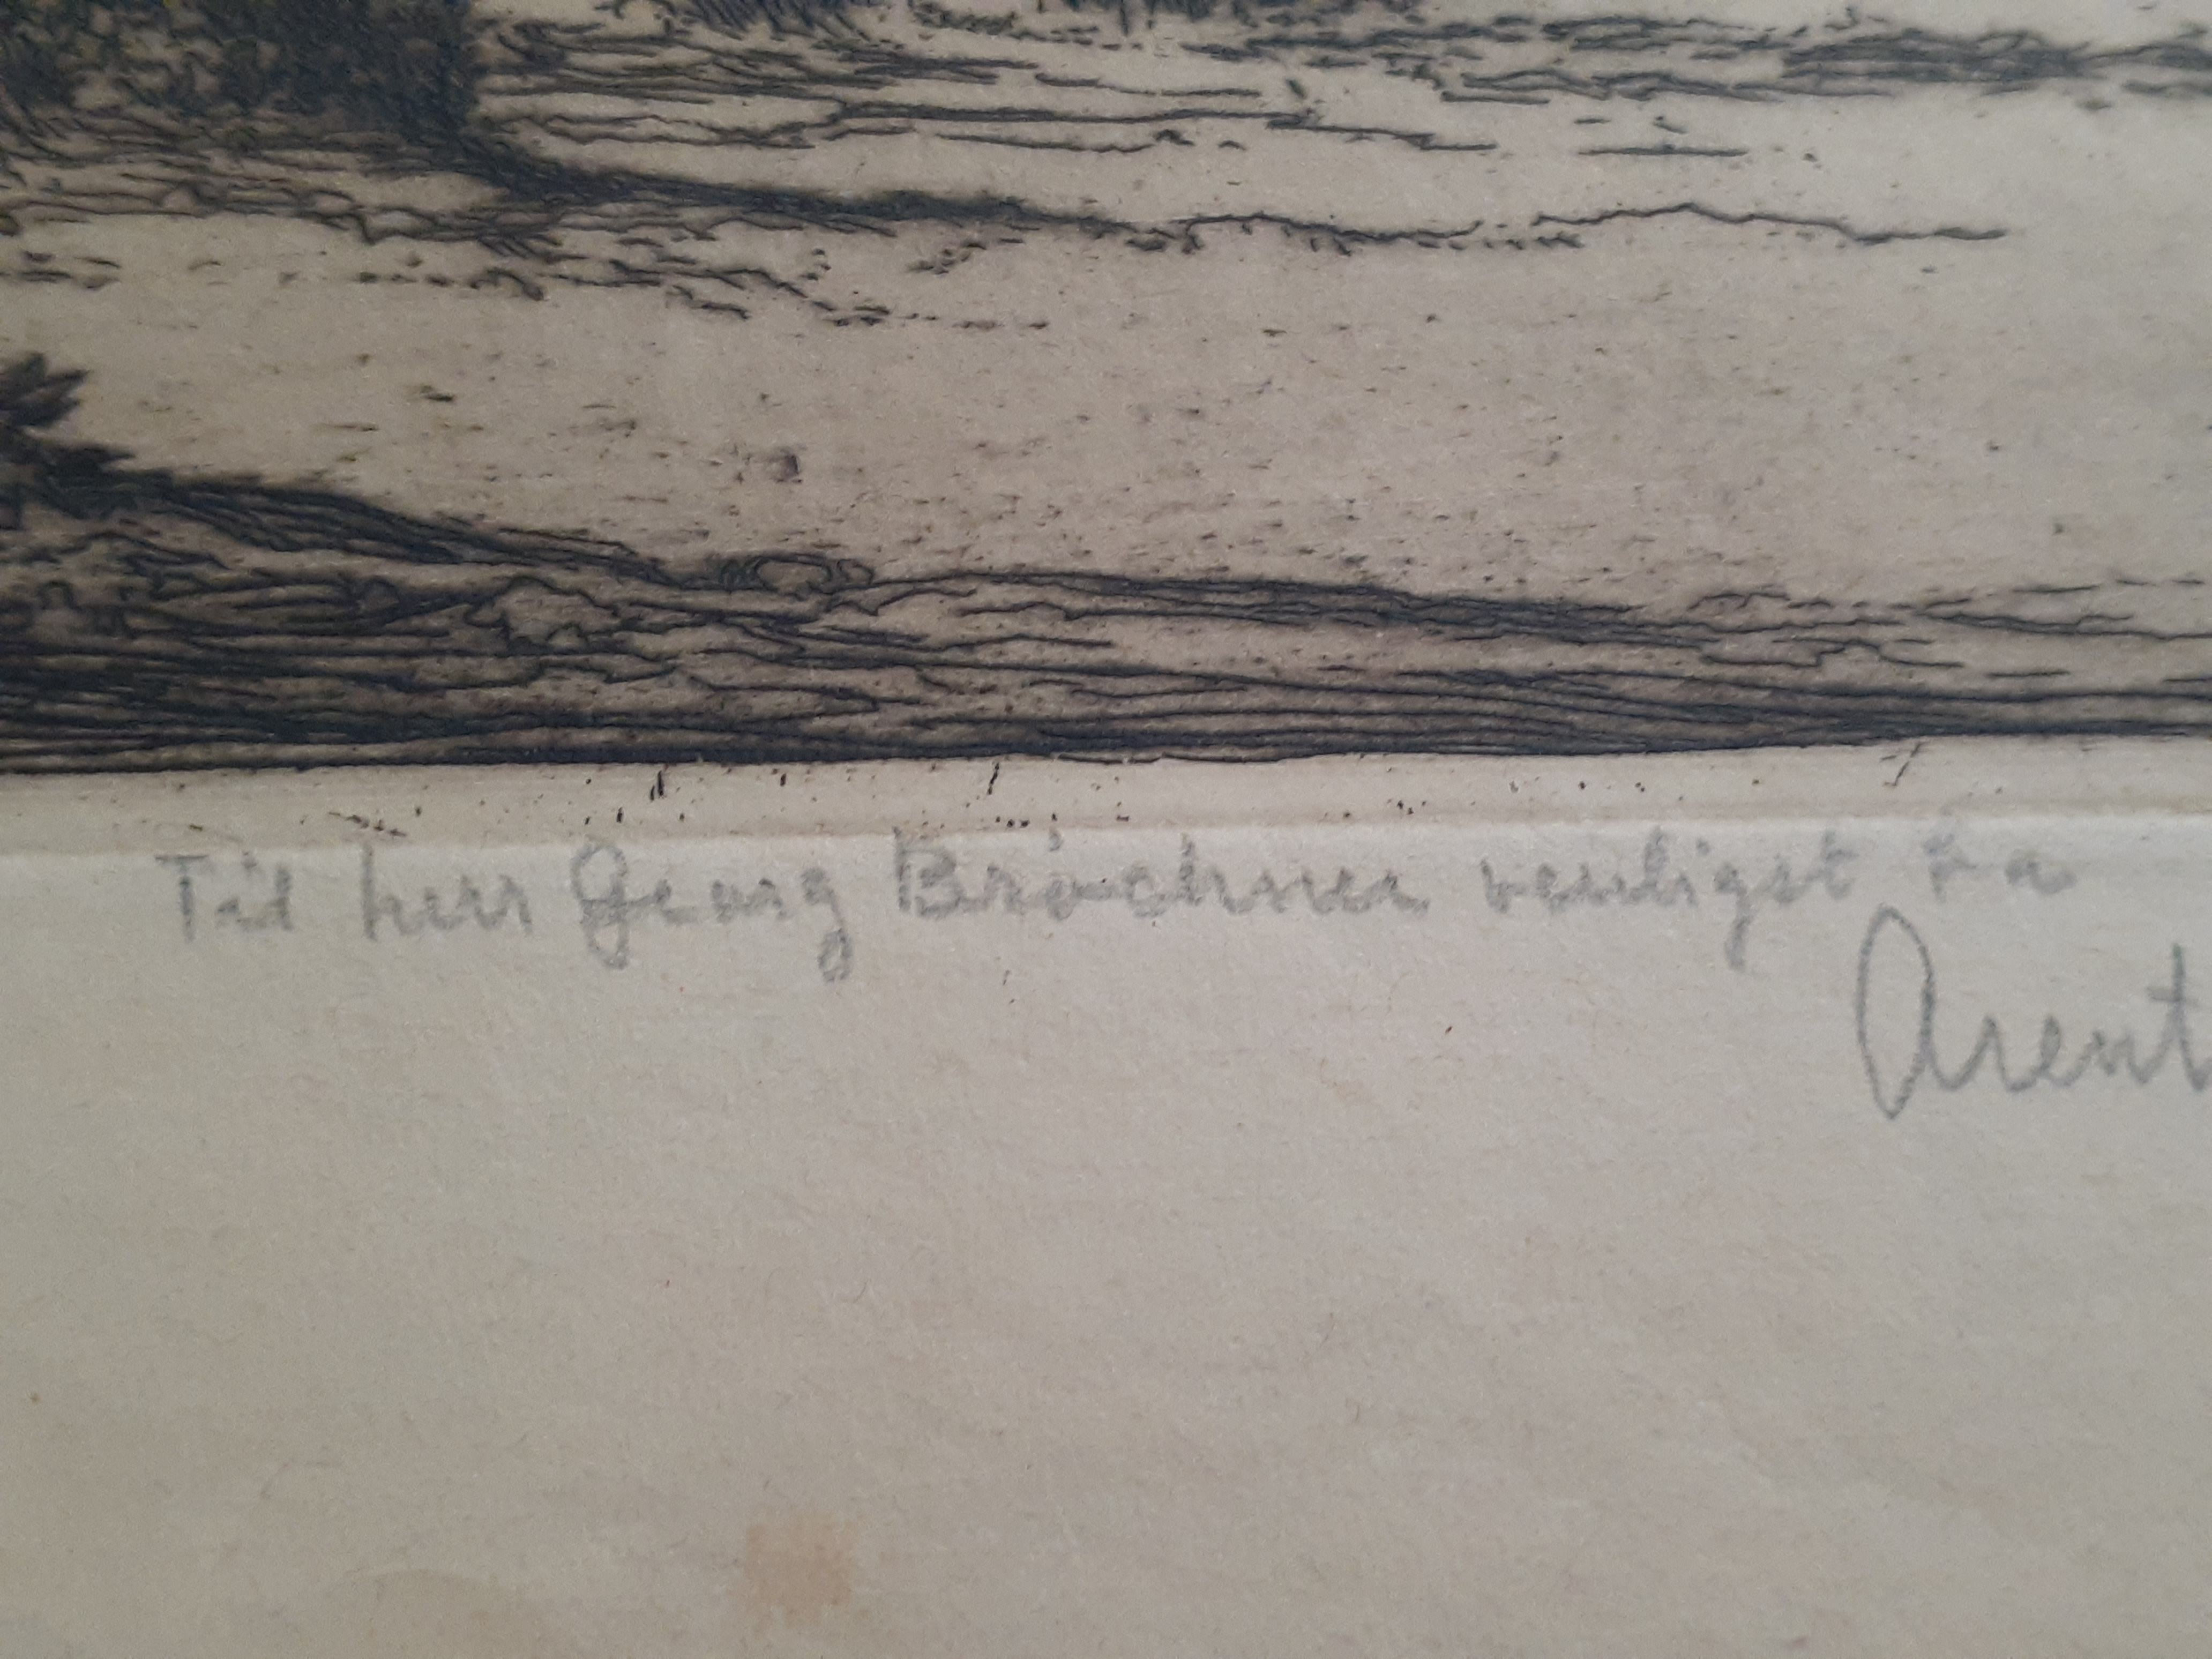 Til herr Georg Brøchner venligst fra
Arent